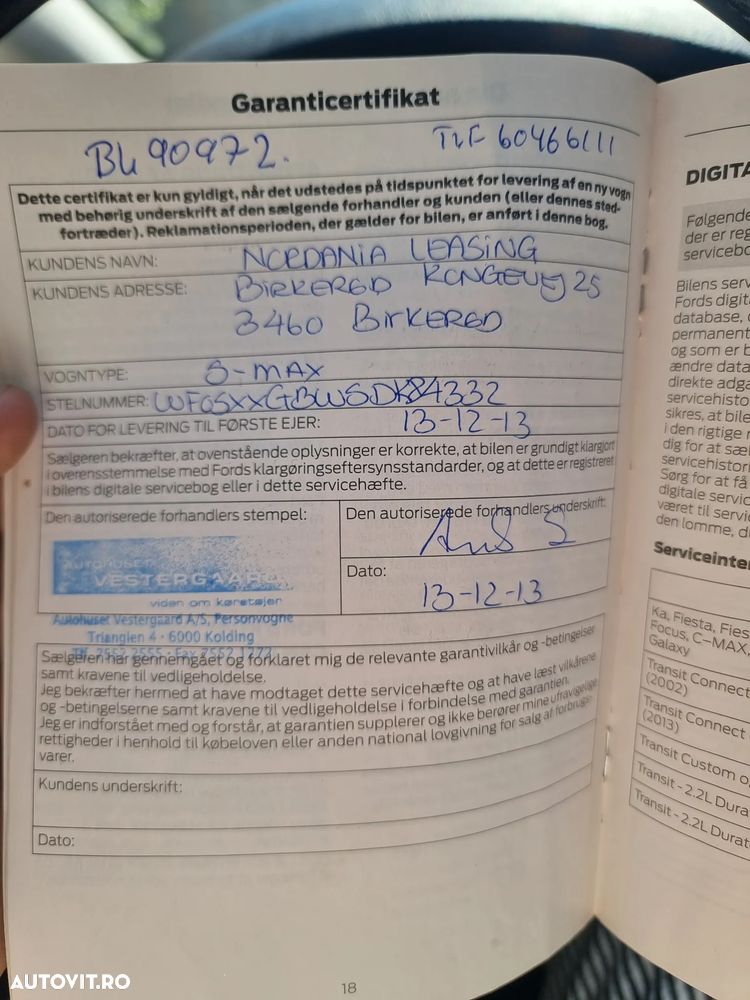 Garanticertifikat
BL 90972.
TLF 60466111
Dette certifikat er kun gyldigt, når det udstedes på tidspunktet for levering af en ny vogn
med behørig underskrift af den sælgende forhandler og kunden (eller dennes sted-
fortræder). Reklamationsperioden, der gælder for bilen, er anført i denne bog.
KUNDENS NAVN: NORDANIA LEASING
KUNDENS ADRESSE: BIRKERØD KONGEVEJ 25
3460 BIRKERØD
VOGNTYPE: S-MAX
STELNUMMER: WF0SXXGBWSDK84332
DATO FOR LEVERING TIL FØRSTE EJER: 13-12-13
Sælgeren bekræfter, at ovenstående oplysninger er korrekte, at bilen er grundigt klargjort
i overensstemmelse med Fords klargøringseftersynsstandarder, og at dette er registreret
i bilens digitale servicebog eller i dette servicehæfte.
Den autoriserede forhandlers stempel:
AUTOHUSET
VESTERGAARD
viden om køretøjer
Autohuset Vestergaard A/S, Personvogne
Trianglen 4 · 6000 Kolding
Tlf. 7552 2555 · Fax 7552 1273
Den autoriserede forhandlers underskrift:
Dato:
13-12-13
Sælgeren har gennemgået og forklaret mig de relevante garantivilkår og -betingelser
samt kravene til vedligeholdelse.
Jeg bekræfter hermed at have modtaget dette servicehæfte og at have læst vilkårene
og -betingelserne samt kravene til vedligeholdelse i forbindelse med garantien.
Jeg er indforstået med og forstår, at garantien supplerer og ikke berører mine ufravigelige
rettigheder i henhold til købeloven eller anden national lovgivning for salg af forbrugs-
varer.
Kundens underskrift:
Dato:
18
DIGITA
Følgende
der er reg
servicebo
Bilens serv
Fords digit
database, 
permanent
og som er b
ændre data
direkte adga
servicehisto
sikres, at bile
i den rigtige r
dig for at sæl
servicehistori
Sørg for at få
digitale servic
været til servic
den lomme, d
Serviceinter
Ka, Fiesta, Fies
Focus, C-MAX,
Galaxy
Transit Connect
(2002)
Transit Connect
(2013)
Transit Custom o
Transit - 2.2L Dura
Transit - 2.2L Durat
AUTOVIT.RO